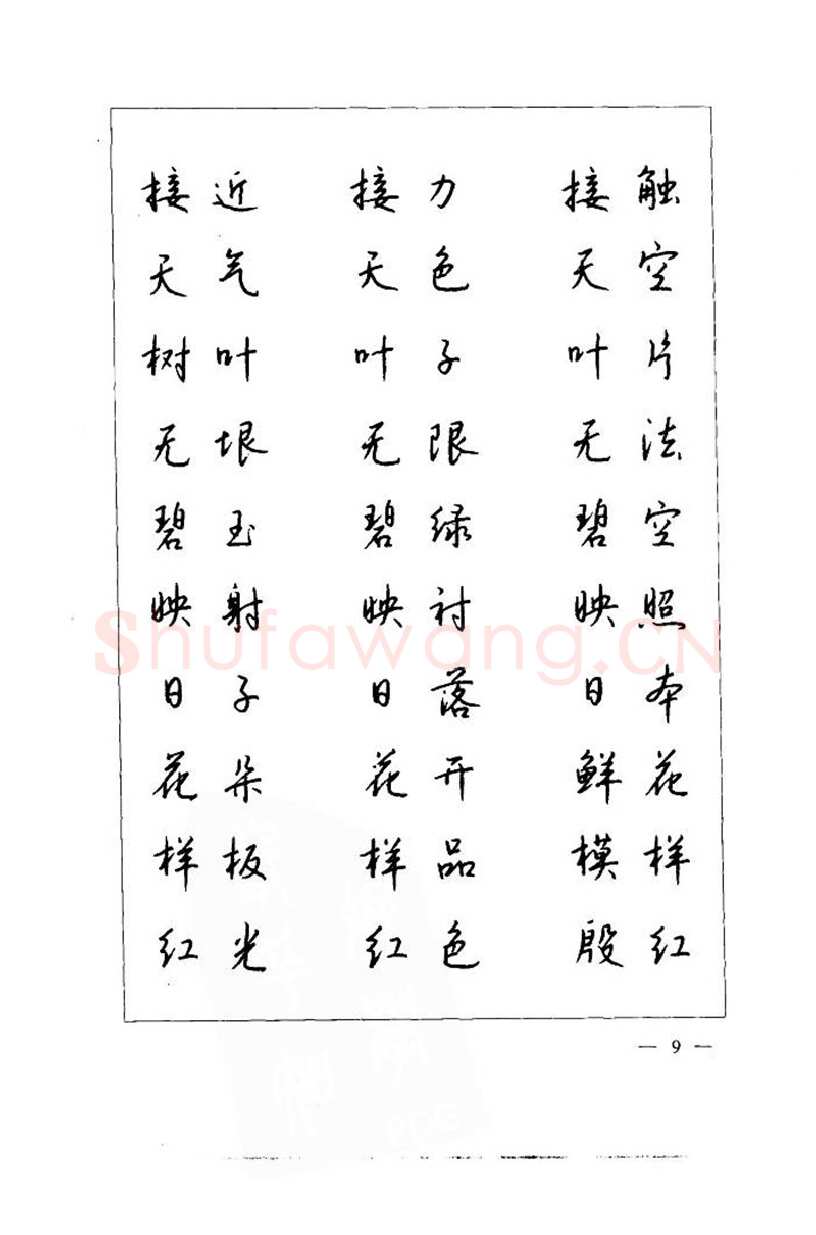 接近 接力 接触
天气 天色 天空
树叶 叶子 叶片
无垠 无限 无法
碧玉 碧绿 碧空
映射 映衬 映照
日子 日落 日本
花朵 花开 鲜花
样板 样品 模样
红光 红色 殷红
Shufawang.CN
— 9 —